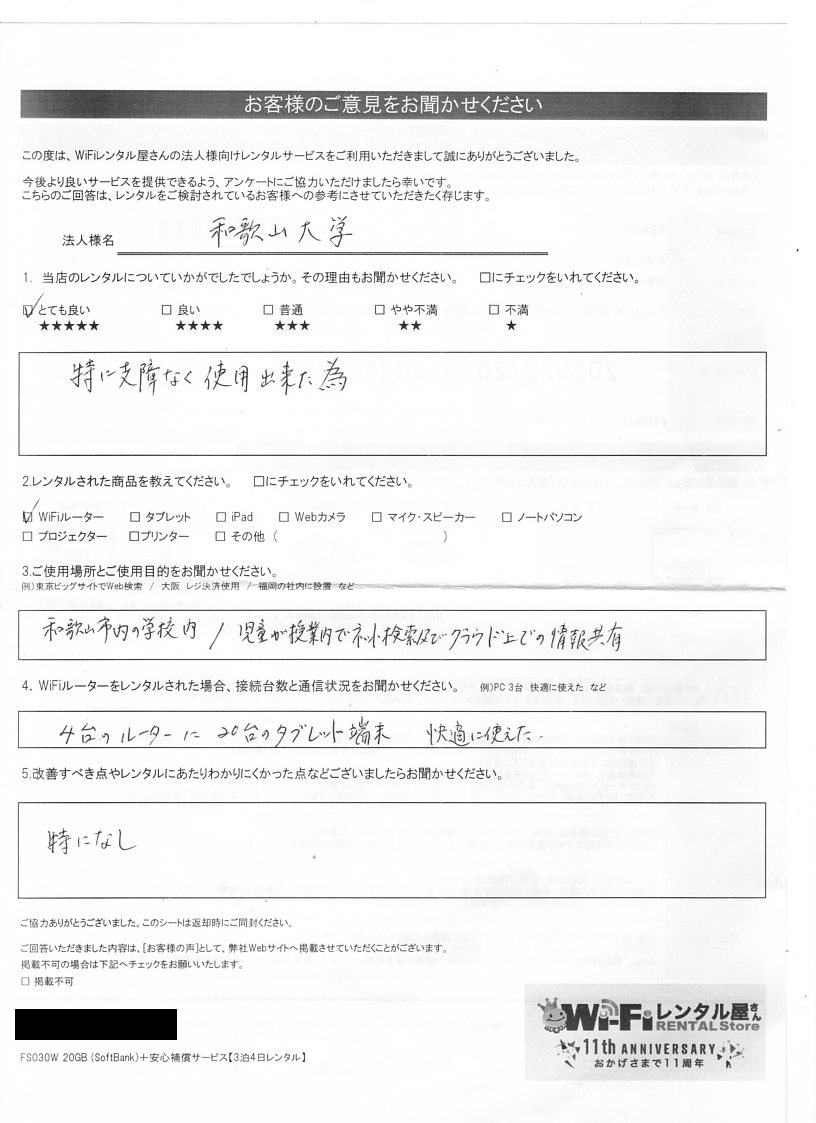 お客様のご意見をお聞かせください
この度は、WiFiレンタル屋さんの法人様向けレンタルサービスをご利用いただきまして誠にありがとうございました。
今後より良いサービスを提供できるよう、アンケートにご協力いただけましたら幸いです。
こちらのご回答は、レンタルをご検討されているお客様への参考にさせていただきたく存じます。
法人様名 和歌山大学
1. 当店のレンタルについていかがでしたでしょうか。その理由もお聞かせください。 □にチェックをいれてください。
☑ とても良い □ 良い □ 普通 □ やや不満 □ 不満
★★★★★ ★★★★ ★★★ ★★ ★
特に支障なく使用出来た為
2.レンタルされた商品を教えてください。 □にチェックをいれてください。
☑ WiFiルーター □ タブレット □ iPad □ Webカメラ □ マイク・スピーカー □ ノートパソコン
□ プロジェクター □プリンター □ その他 ( )
3.ご使用場所とご使用目的をお聞かせください。
例)東京ビッグサイトでWeb検索 / 大阪 レジ決済使用 / 福岡の社内に設置 など
和歌山市内の学校内 / 児童が授業内でネット検索及びクラウド上での情報共有
4. WiFiルーターをレンタルされた場合、接続台数と通信状況をお聞かせください。 例)PC 3台 快適に使えた など
4台のルーターに 20台のタブレット端末 快適に使えた.
5.改善すべき点やレンタルにあたりわかりにくかった点などございましたらお聞かせください。
特になし
ご協力ありがとうございました。このシートは返却時にご同封ください。
ご回答いただきました内容は、[お客様の声]として、弊社Webサイトへ掲載させていただくことがございます。
掲載不可の場合は下記へチェックをお願いいたします。
□ 掲載不可
Wi-Fiレンタル屋さん
RENTAL Store
11th ANNIVERSARY
おかげさまで11周年
FS030W 20GB (SoftBank)+安心補償サービス【3泊4日レンタル】